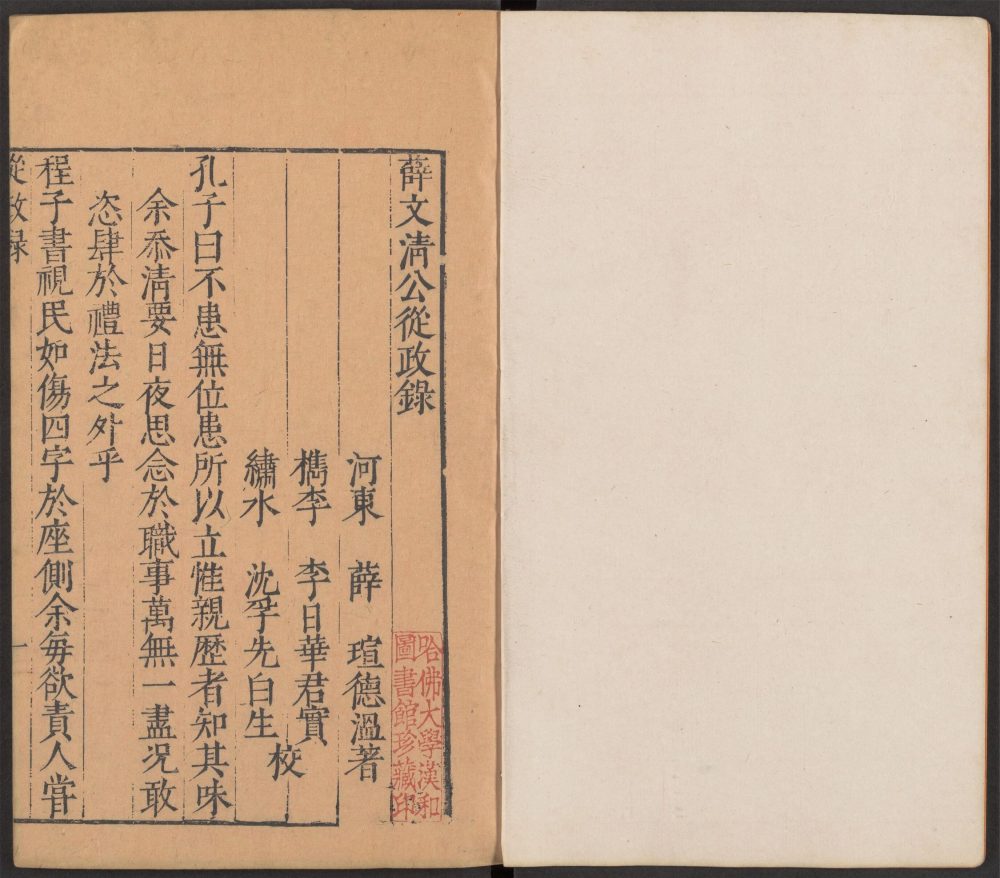 薛文淸公從政錄
河東 薛 瑄德溫著
檇李 李日華君實
繡水 沈孚先白生
校
孔子曰不患無位患所以立惟親歷者知其味
余忝淸要日夜思念於職事萬無一盡况敢
恣肆於禮法之外乎
程子書視民如傷四字於座側余每欲責人甞
從政録
一
哈佛大學漢和
圖書館珍藏印